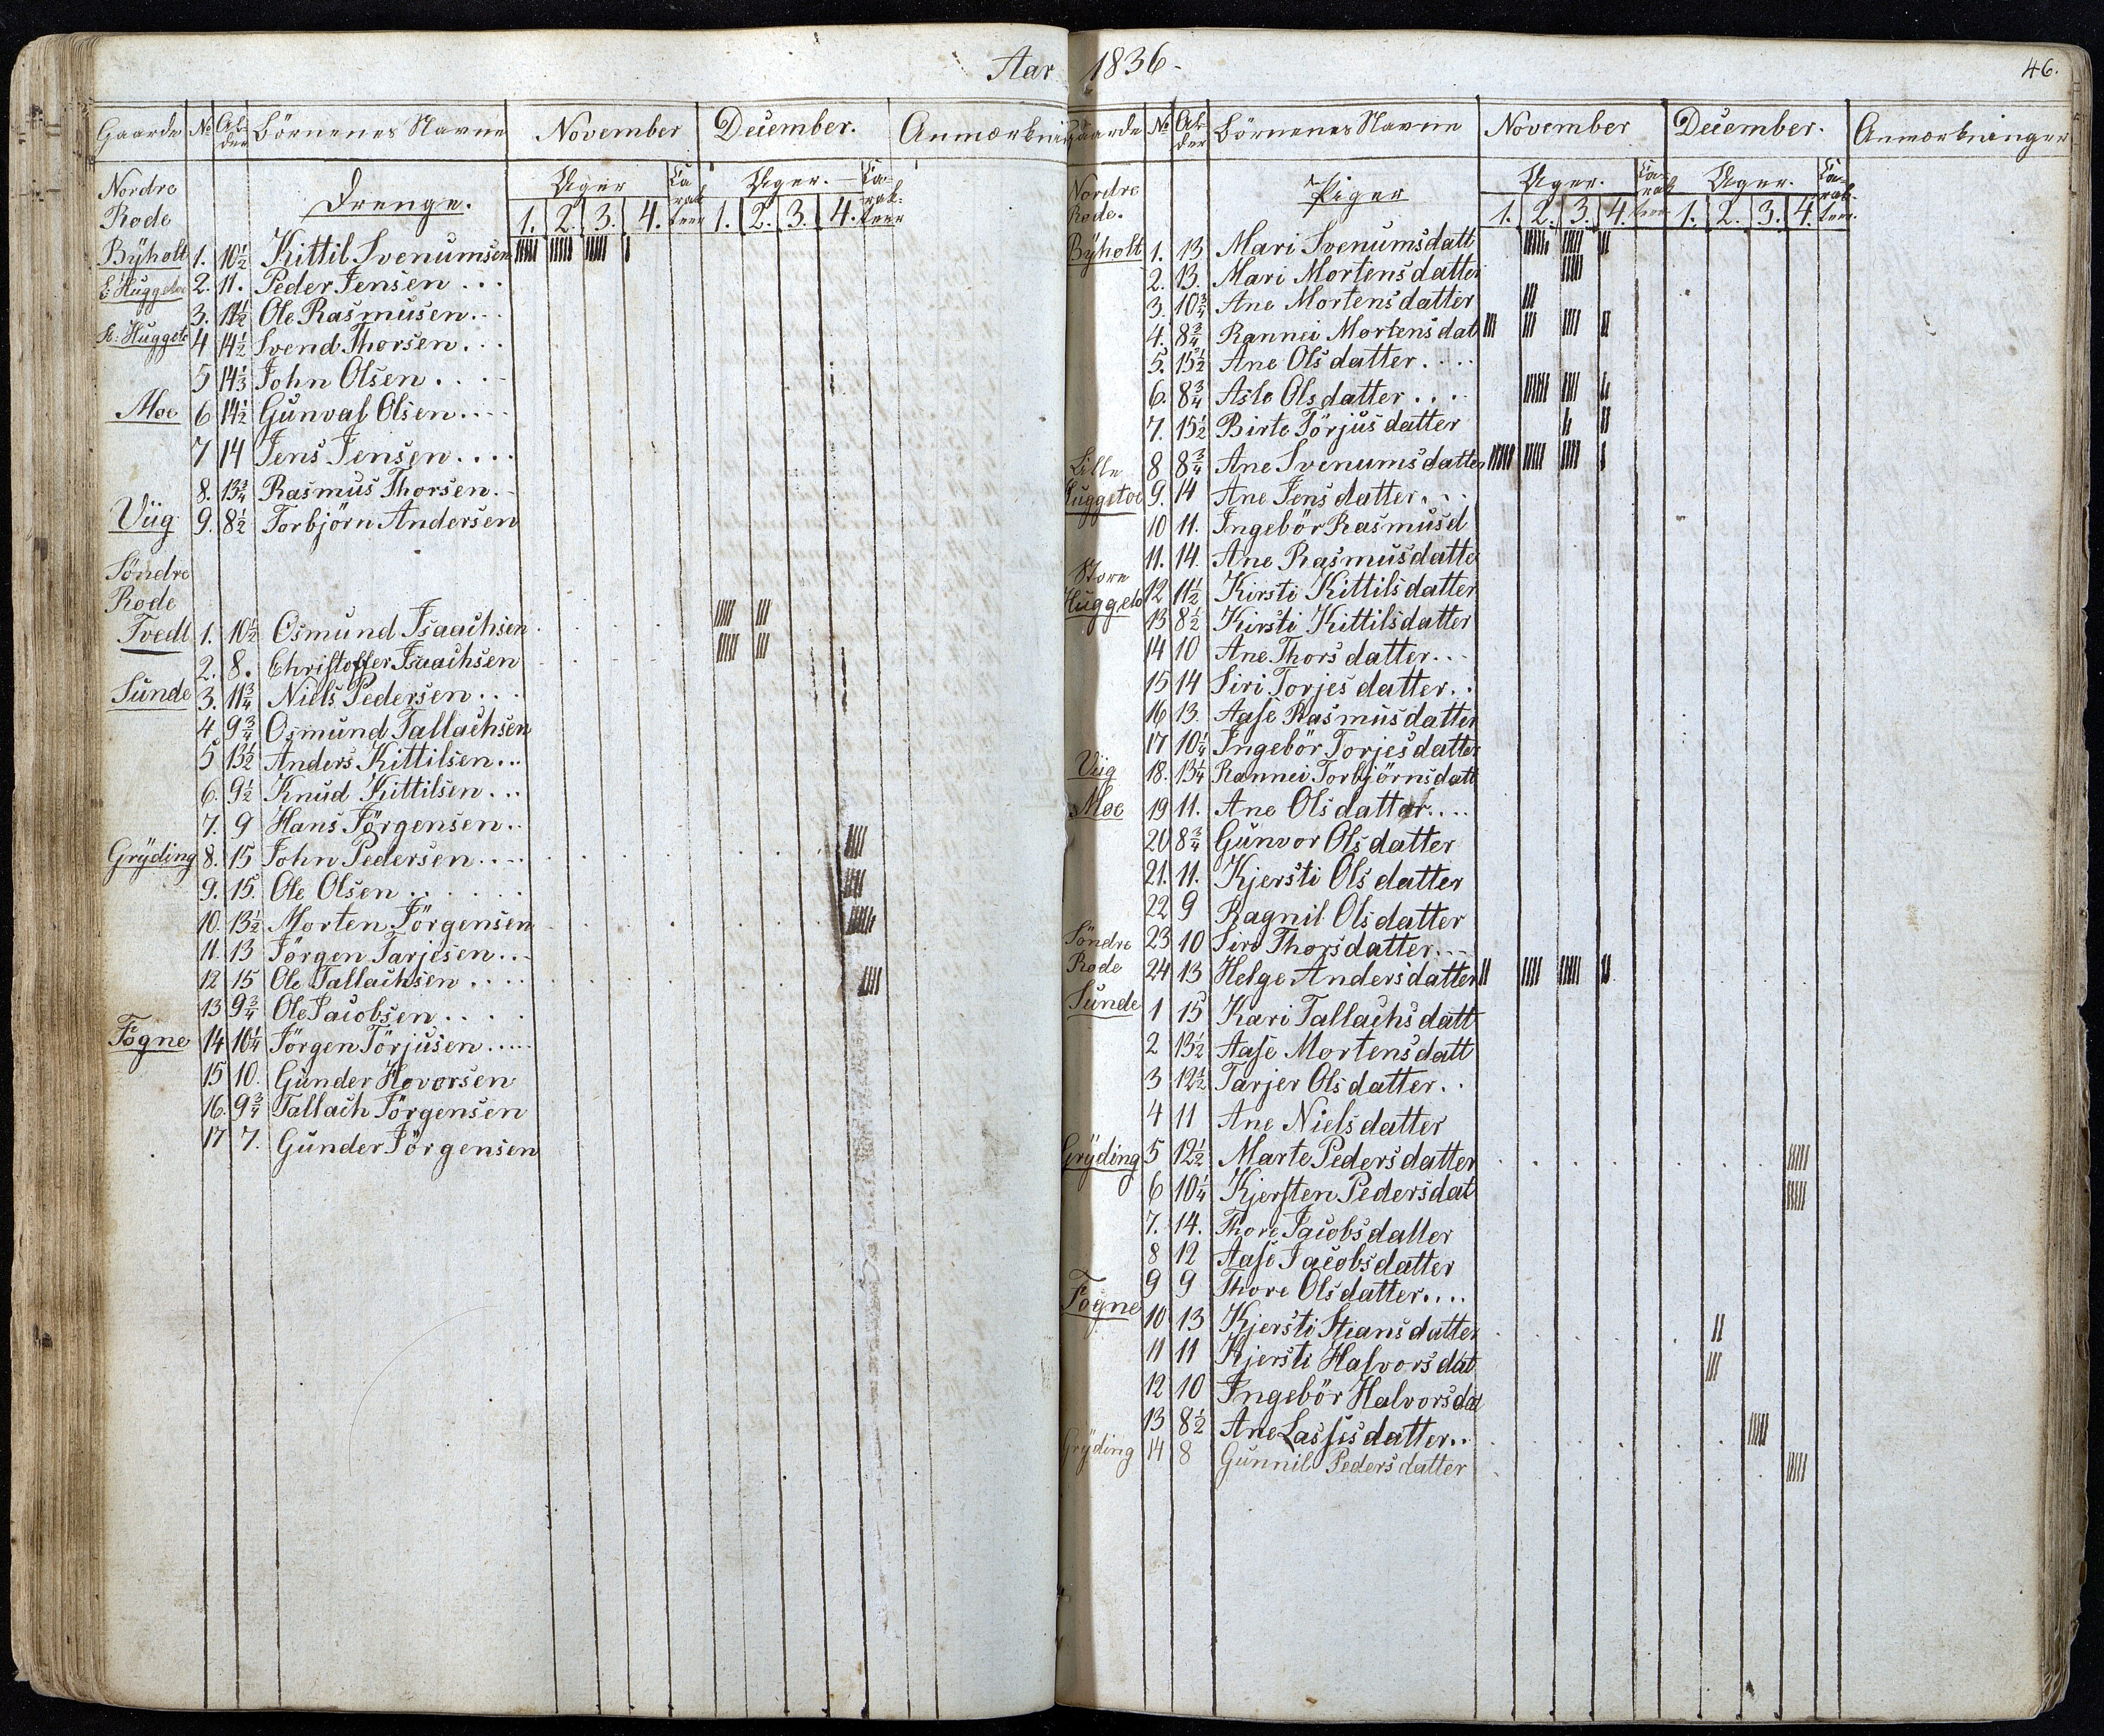 Aar 1836.
46.
Gaarde No Alder Börnenes Navne November December. Anmærkning
Nordre Uger Uger.
Rode Drenge. 1. 2. 3. 4. 1. 2. 3. 4.
Byholt 1. 10 1/2 Kittil Svenumsen
L: Huggetoe 2. 11. Peder Jensen . . .
3. 11 1/2 Ole Rasmusen . . .
St: Huggeto 4 14 1/2 Svend Thorsen . . .
5 14 1/3 John Olsen . . . .
Moe 6 14 1/2 Gunval Olsen . . . .
7 14 Jens Jensen . . . .
8. 13 3/4 Rasmus Thorsen . .
Viig 9. 8 1/2 Torbjörn Andersen
Söndre
Rode
Tvedt 1. 10 1/2 Osmund Isaachsen
2. 8. Christoffer Isaachsen
Sunde 3. 11 3/4 Niels Pedersen . . .
4 9 3/4 Osmund Tallachsen
5 13 1/2 Anders Kittilsen . . .
6. 9 1/2 Knud Kittilsen . . .
7. 9 Hans Jörgensen . .
Gryding 8. 15 John Pedersen . . . .
9. 15. Ole Olsen . . . . . .
10. 13 1/2 Morten Jörgensen
11. 13 Jörgen Tarjesen . . .
12 15 Ole Tallachsen . . . .
13 9 3/4 Ole Jacobsen . . . .
Fögne 14 10 1/4 Jörgen Törjusen . . . . .
15 10. Gunder Hovorsen
16. 9 3/4 Tallach Jörgensen
17 7. Gunder Jörgensen
Gaarde No Alder Börnenes Navne November December. Anmærkninger
Nordre Uger. Uger.
Rode. Piger 1. 2. 3. 4. 1. 2. 3. 4.
Byholt 1. 13 Mari Svenumsdatt
2. 13. Mari Mortensdatter
3. 10 3/4 Ane Mortensdatter
4. 8 3/4 Rannei Mortensdat
5. 15 1/2 Ane Olsdatter . . . .
6. 8 3/4 Asle Olsdatter . . . .
7. 15 1/2 Birte Törjusdatter
Lille 8 8 3/4 Ane Svenumsdatter
Huggetoe 9. 14 Ane Jensdatter . . .
10 11. Ingebör Rasmusd
11. 14. Ane Rasmusdatte
Store 12 11 1/2 Kirsti Kittilsdatter
Huggeto 13 8 1/2 Kirsti Kittilsdatter
14 10 Ane Thorsdatter . . .
15 14 Siri Torjesdatter . .
16 13. Aase Rasmusdatter
17 10 1/4 Ingebör Torjesdatter
Viig 18. 13 1/4 Rannei Torbjörnsdatt
Moe 19 11. Ane Olsdatter . . . .
20 8 3/4 Gunvor Olsdatter
21. 11. Kjersti Olsdatter
22 9 Ragnil Olsdatter
Söndre 23 10 Siro Thorsdatter . . .
Rode 24 13 Helge Andersdatter
Sunde 1 15 Kari Tallachsdatt
2 13 1/2 Aase Mortensdatt
3 12 1/2 Tarjer Olsdatter . .
4 11 Ane Nielsdatter
Gryding 5 12 1/2 Marte Pedersdatter
6 10 1/4 Kjersten Pedersdat
7. 14. Thore Jacobsdatter
8 12 Aase Jacobsdatter
9 9 Thore Olsdatter . . . .
Fögne 10 13 Kjersti Stiansdatter
11 11 Kjersti Halvorsdat
12 10 Ingebör Halvorsdat
13 8 1/2 Ane Lassesdatter . .
Gryding 14 8 Gunnil Pedersdatter